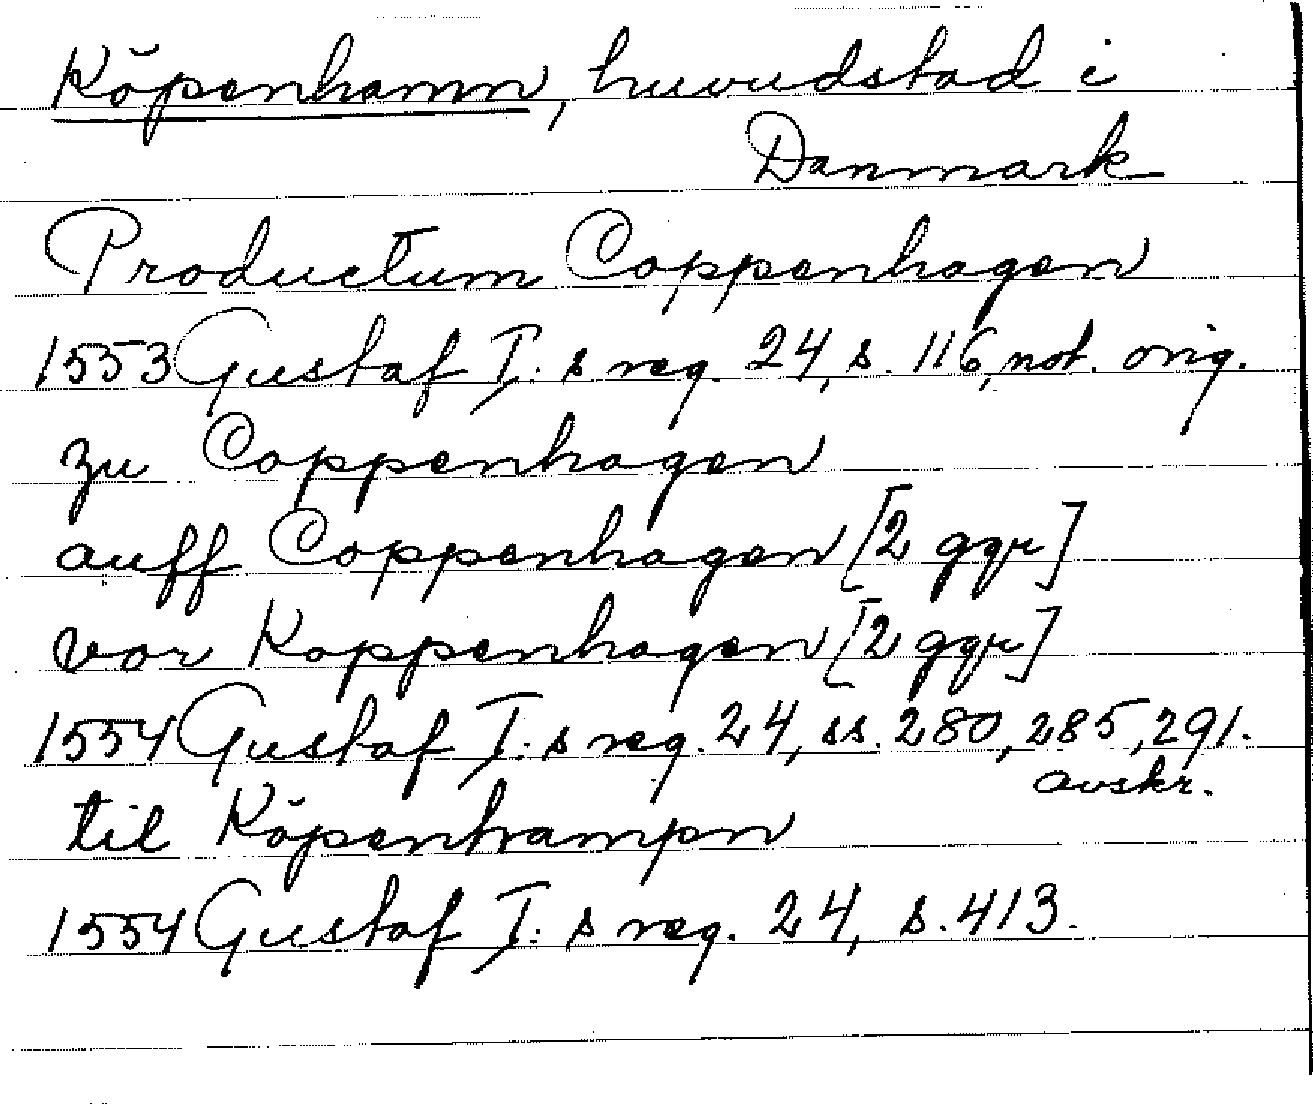 Köpenhamn, huvudstad i
Danmark
Productum Coppenhagen
1553 Gustaf I:s reg. 24, s. 116, not. orig.
zu Coppenhagen
auff Coppenhagen [2 ggr]
vor Koppenhagen [2 ggr]
1554 Gustaf I:s reg. 24, ss. 280, 285, 291.
avskr.
til Köpenhampn
1554 Gustaf I:s reg. 24, s. 413.